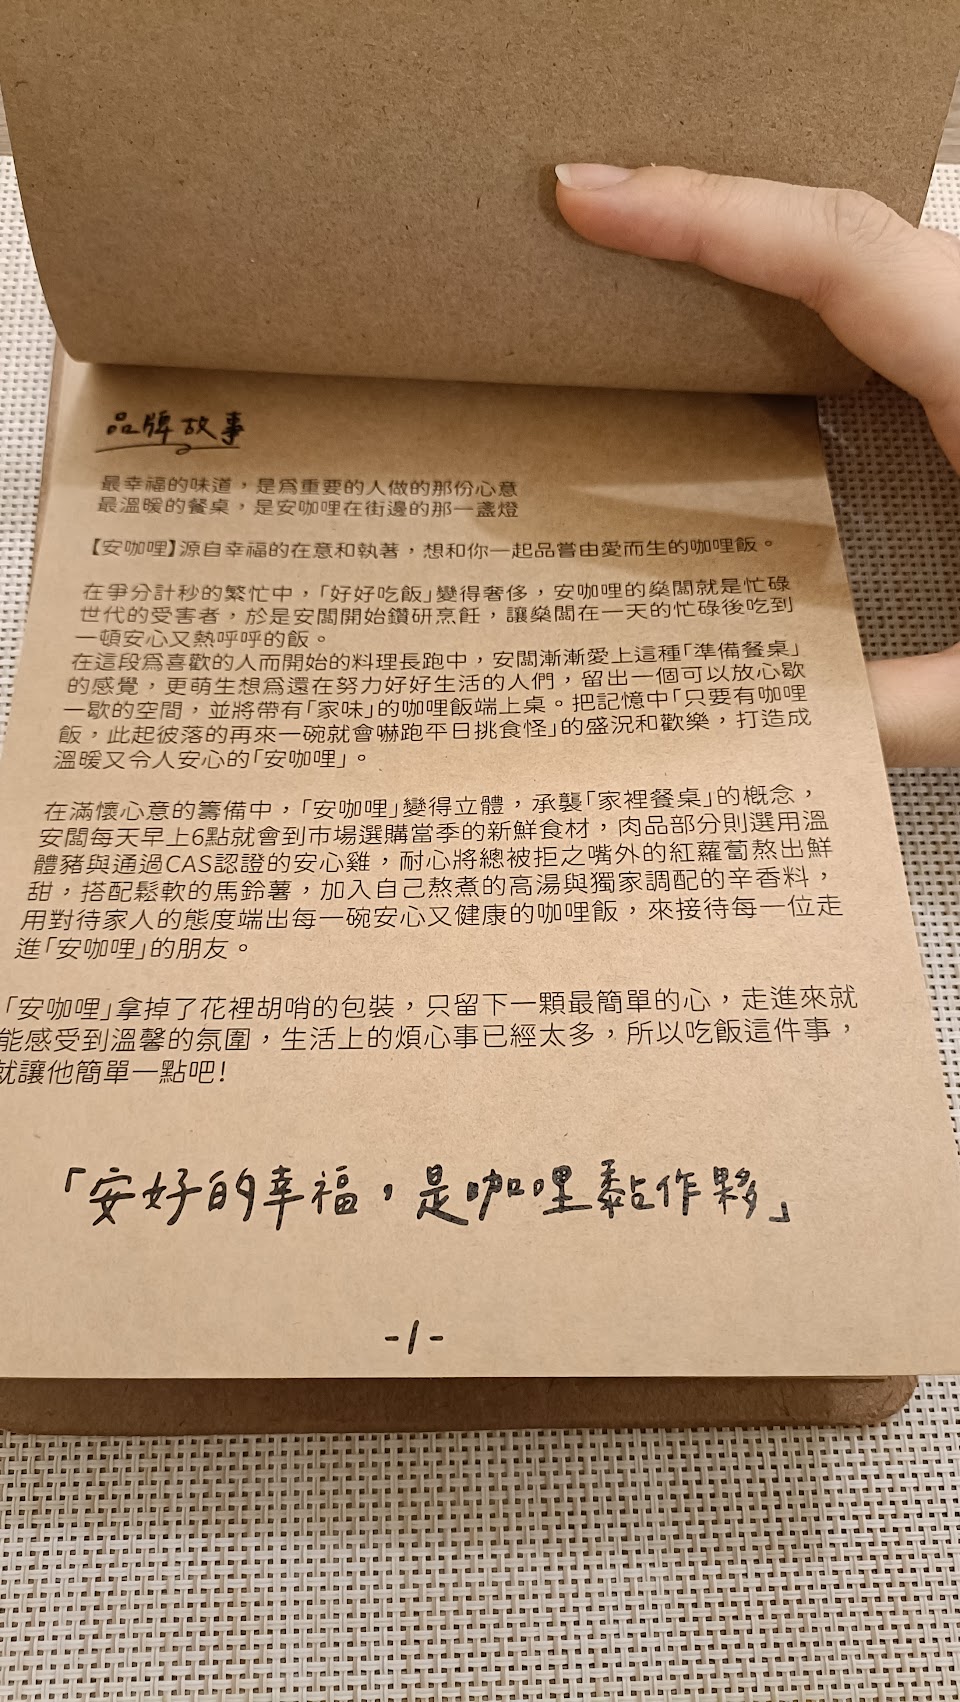 品牌故事
最幸福的味道，是爲重要的人做的那份心意
最溫暖的餐桌，是安咖哩在街邊的那一盞燈
【安咖哩】源自幸福的在意和執著，想和你一起品嘗由愛而生的咖哩飯。
在爭分計秒的繁忙中，「好好吃飯」變得奢侈，安咖哩的燊闆就是忙碌
世代的受害者，於是安闆開始鑽研烹飪，讓燊闆在一天的忙碌後吃到
一頓安心又熱呼呼的飯。
在這段爲喜歡的人而開始的料理長跑中，安闆漸漸愛上這種「準備餐桌」
的感覺，更萌生想爲還在努力好好生活的人們，留出一個可以放心歇
一歇的空間，並將帶有「家味」的咖哩飯端上桌。把記憶中「只要有咖哩
飯，此起彼落的再來一碗就會嚇跑平日挑食怪」的盛況和歡樂，打造成
溫暖又令人安心的「安咖哩」。
在滿懷心意的籌備中，「安咖哩」變得立體，承襲「家裡餐桌」的概念，
安闆每天早上6點就會到市場選購當季的新鮮食材，肉品部分則選用溫
體豬與通過CAS認證的安心雞，耐心將總被拒之嘴外的紅蘿蔔熬出鮮
甜，搭配鬆軟的馬鈴薯，加入自己熬煮的高湯與獨家調配的辛香料，
用對待家人的態度端出每一碗安心又健康的咖哩飯，來接待每一位走
進「安咖哩」的朋友。
「安咖哩」拿掉了花裡胡哨的包裝，只留下一顆最簡單的心，走進來就
能感受到溫馨的氛圍，生活上的煩心事已經太多，所以吃飯這件事，
就讓他簡單一點吧！
「安好的幸福，是咖哩黏作夥」
-1-